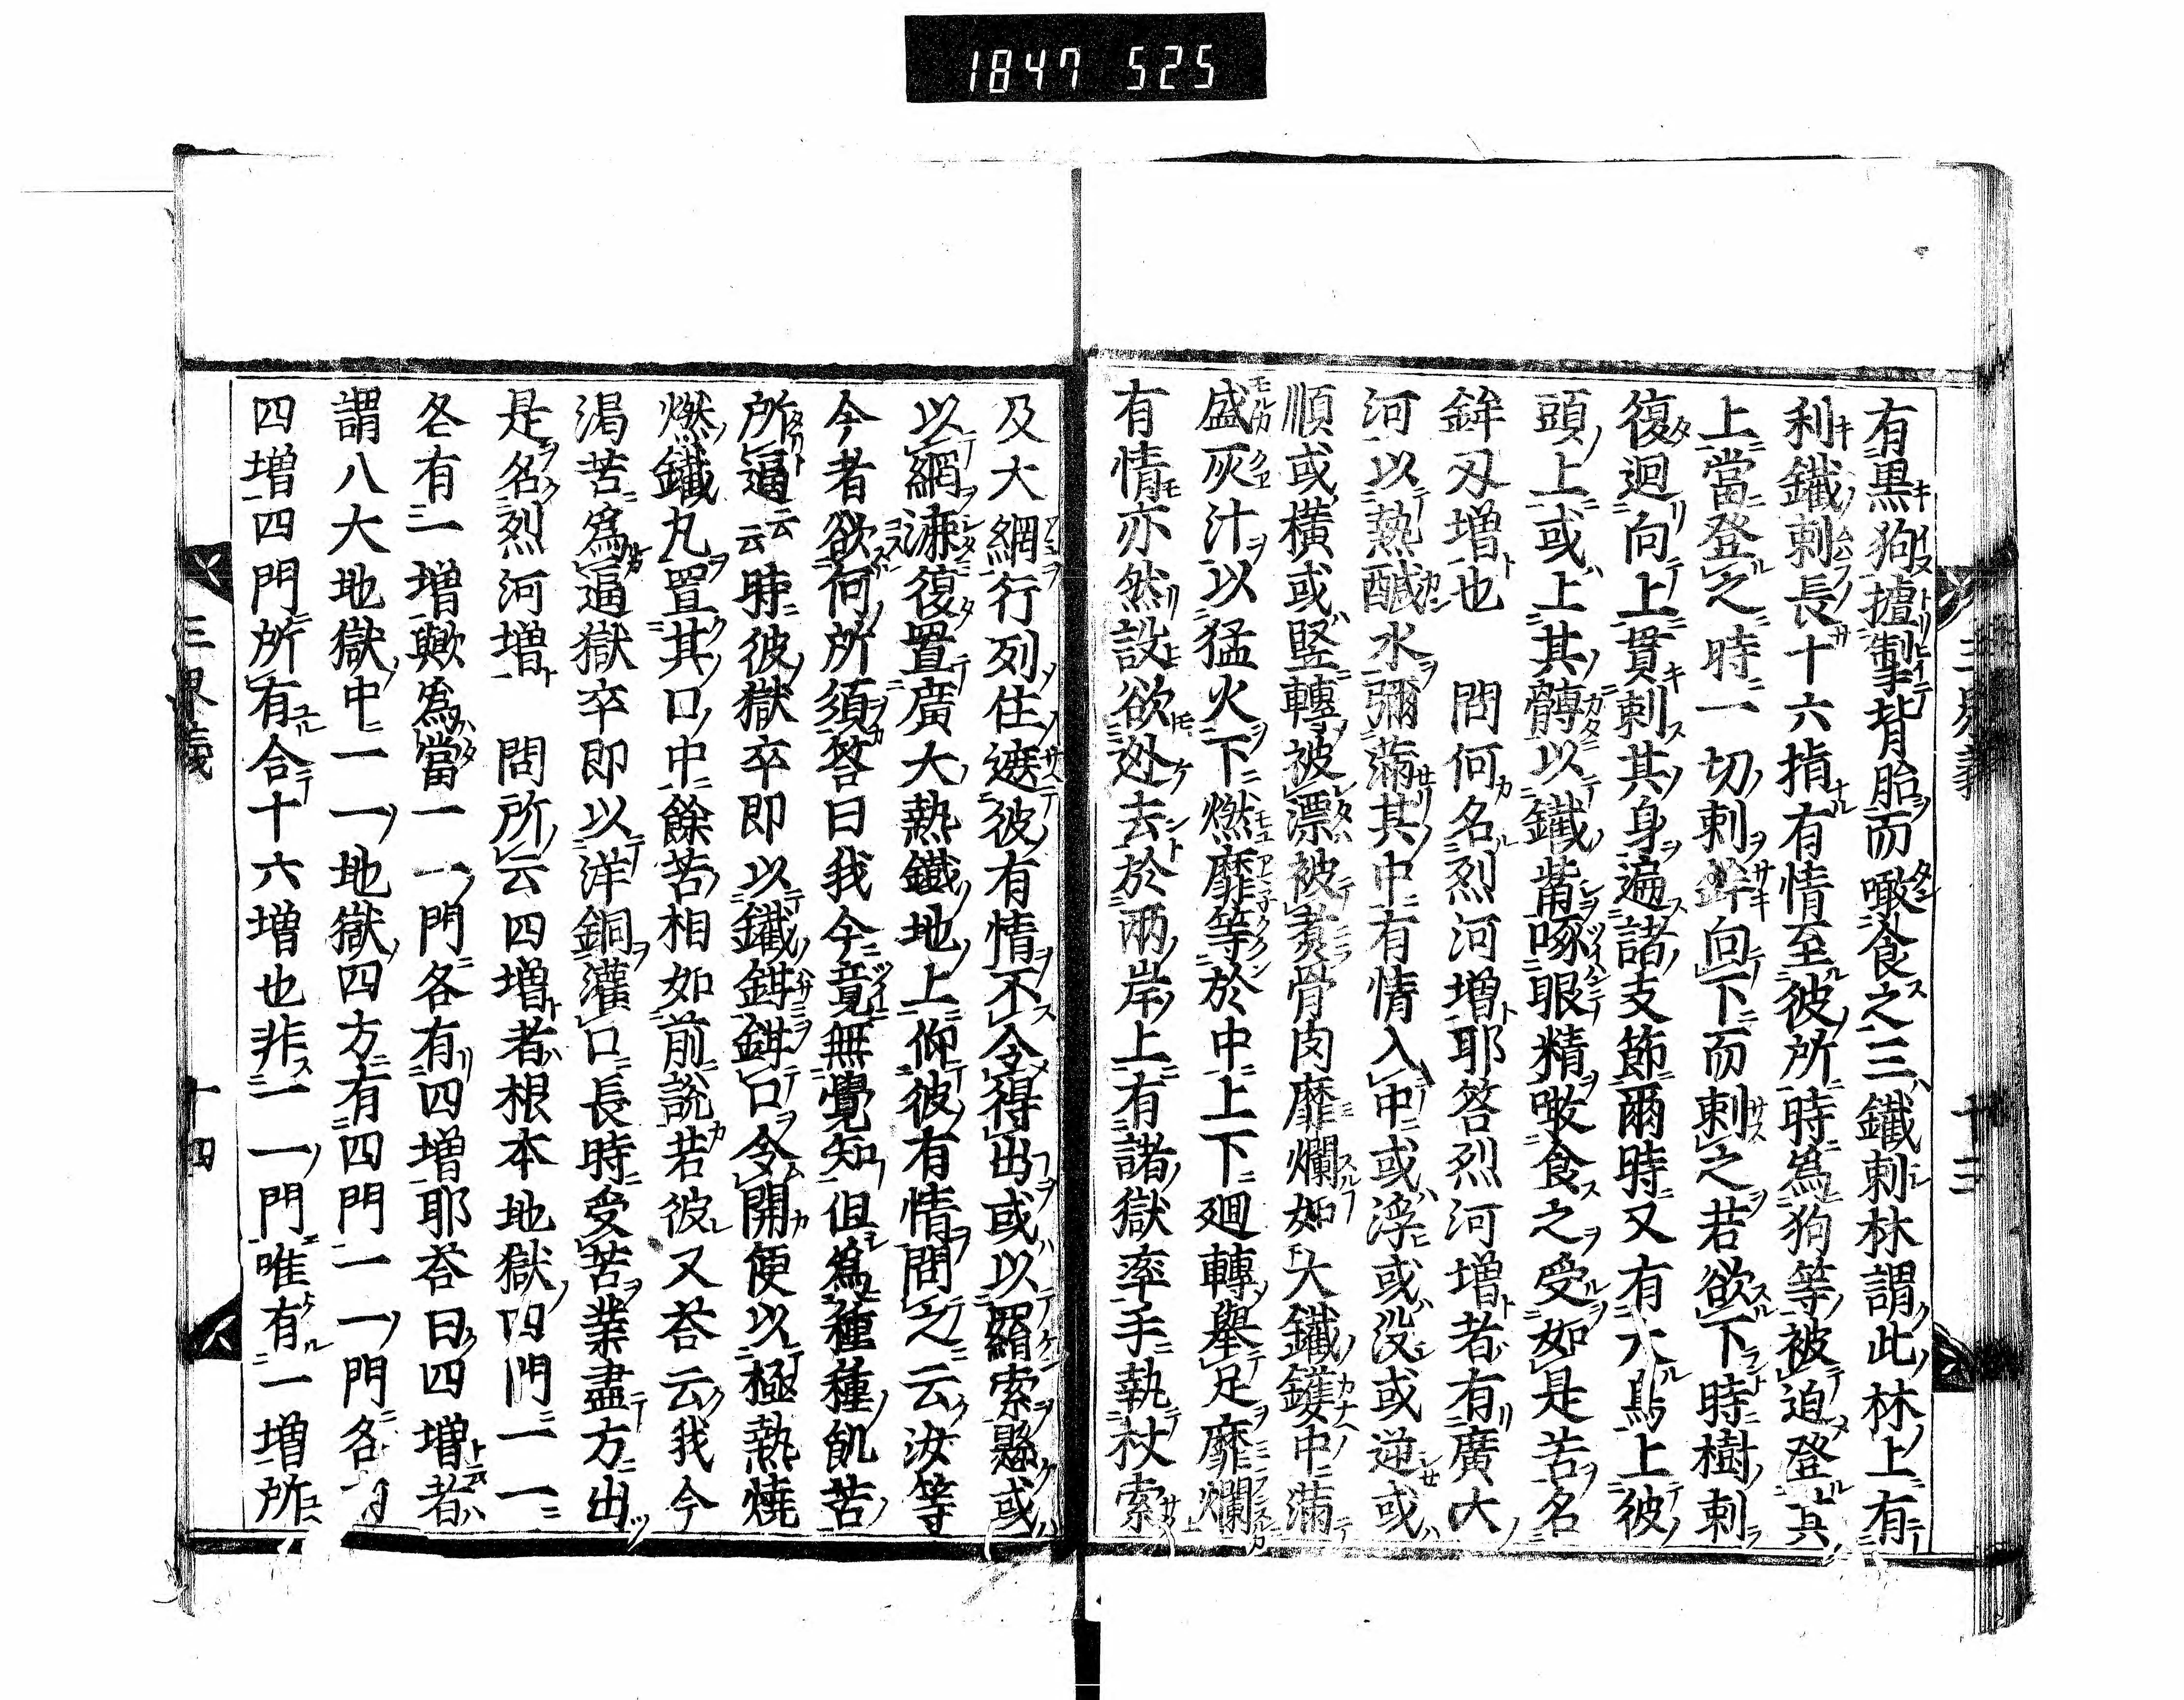 1847 525
三界義 十三
有黒狗摣掣背胎而噉食之三鐵刺林謂此林上有
利鐵刺長十六指有情至彼所時爲狗等被迫登其
上當登之時一切刺鉾向下而刺之若欲下時樹刺
復迴向上貫刺其身遍諸支節爾時又有大鳥上彼
頭上或上其髆以鐵觜啄眼精噉食之受如是苦名
鉾刄増也 問何名烈河増耶答烈河増者有廣大
河以熱醎水彌滿其中有情入中或浮或没或逆或
順或横或竪轉被漂被煮骨肉靡爛如大鐵鑊中滿
盛灰汁以猛火下燃靡等於中上下廻轉擧足靡爛
有情亦然設欲迯去於兩岸上有諸獄率手執杖索
及大網行列住遮彼有情不令得出或以羂索懸或
以網漉復置廣大熱鐵地上仰彼有情問之云汝等
今者欲何所須答曰我今竟無覺知但爲種種飢苦
所逼云云時彼獄卒即以鐵鉗鉗口令開便以極熱燒
燃鐵丸置其口中餘苦相如前説若彼又荅云我今
渇苦爲逼獄卒即以洋銅灌口長時受苦業盡方出
是名烈河増 問所云四増者根本地獄四門一一
各有一増歟爲當一一門各有四増耶荅曰四増者
謂八大地獄中一一地獄四方有四門一一門各有
四増四門所有合十六増也非一一門唯有一増所
三界義 十四